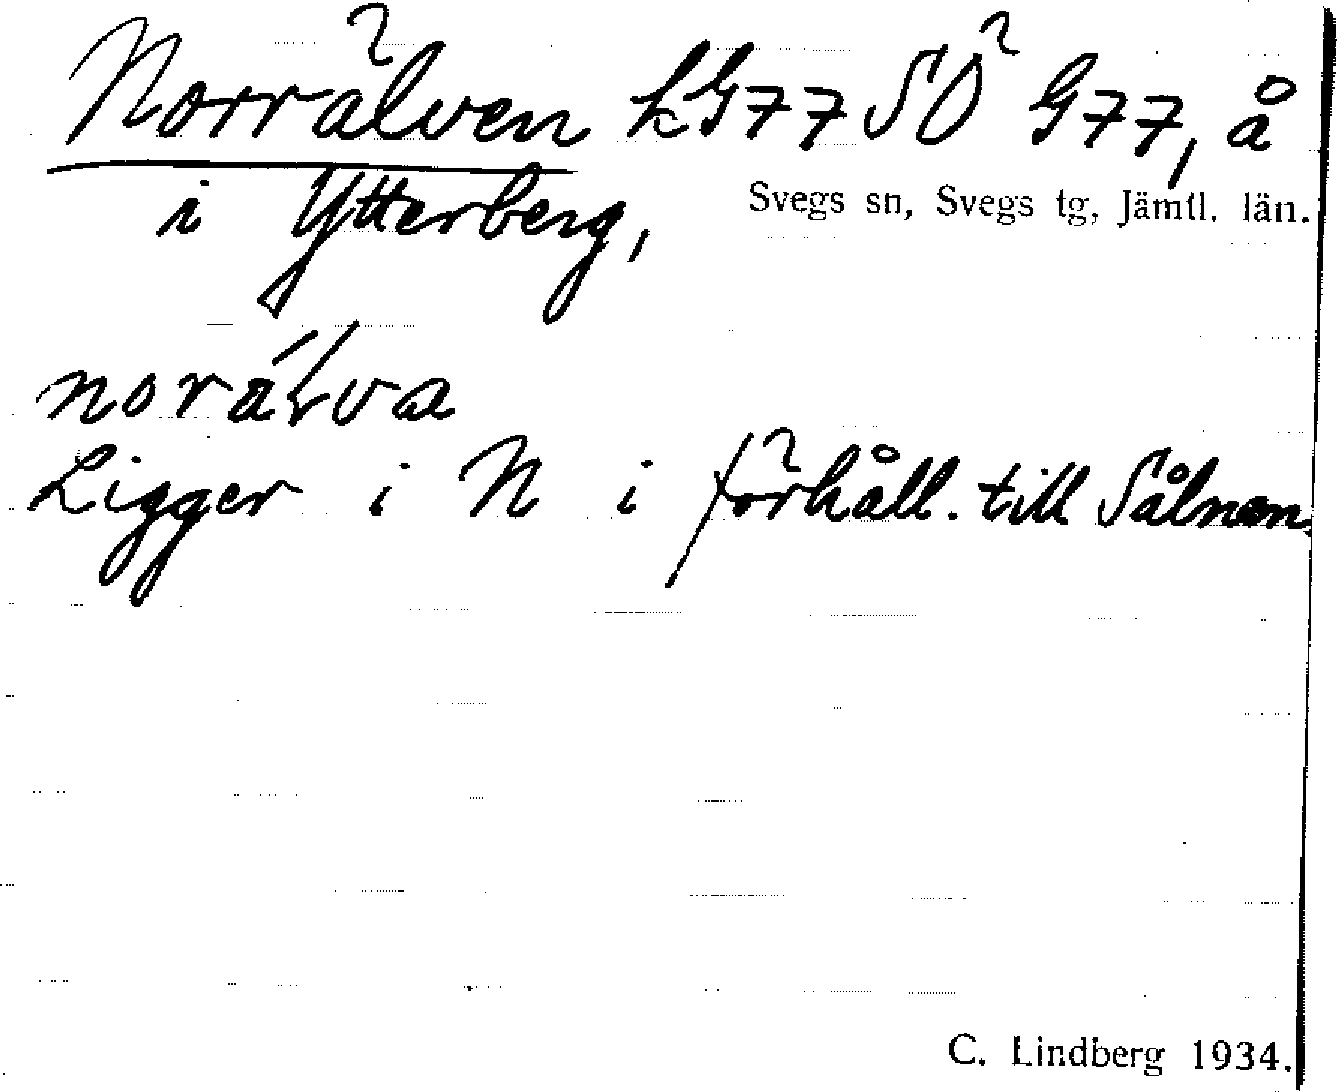 Norrälven LG77 SÖ G77, å
i Ytterberg, Svegs sn, Svegs tg, Jämtl. län.
norä́ɽva
Ligger i N i förhåll. till Sålnen.
C. Lindberg 1934.